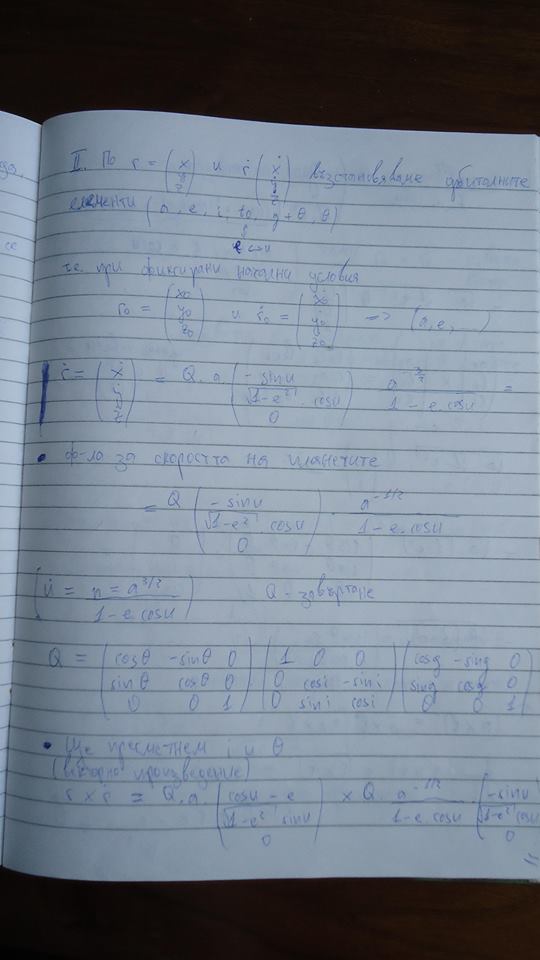 II. По r = (x y z) и ṙ (ẋ ẏ ż) възстановяваме орбиталните
елементи (a, e, i, t₀, g + θ, θ)
т.е. при фиксирани начални условия
r₀ = (x₀ y₀ z₀) и ṙ₀ = (ẋ₀ ẏ₀ ż₀) => (a, e, ...)
ṙ = (ẋ ẏ ż) = Q. a. (- sinu √1-e² . cosu 0) a^-3/2 / 1 - e. cosu =
• ф-ла за скоростта на планетите
= Q (- sinu √1-e² . cosu 0) . a^-1/2 / 1 - e. cosu
(u̇ = n = a^3/2 / 1 - e. cosu) Q - завъртане
Q = (cosθ -sinθ 0 sinθ cosθ 0 0 0 1) . (1 0 0 0 cosi -sini 0 sini cosi) (cosg -sing 0 sing cosg 0 0 0 1)
• Ще пресметнем i и θ
(векторно произведение)
r × ṙ = Q. a. (cosu - e √1-e² sinu 0) × Q. a^-1/2 / 1 - e cosu . (-sinu √1-e² cosu 0) =